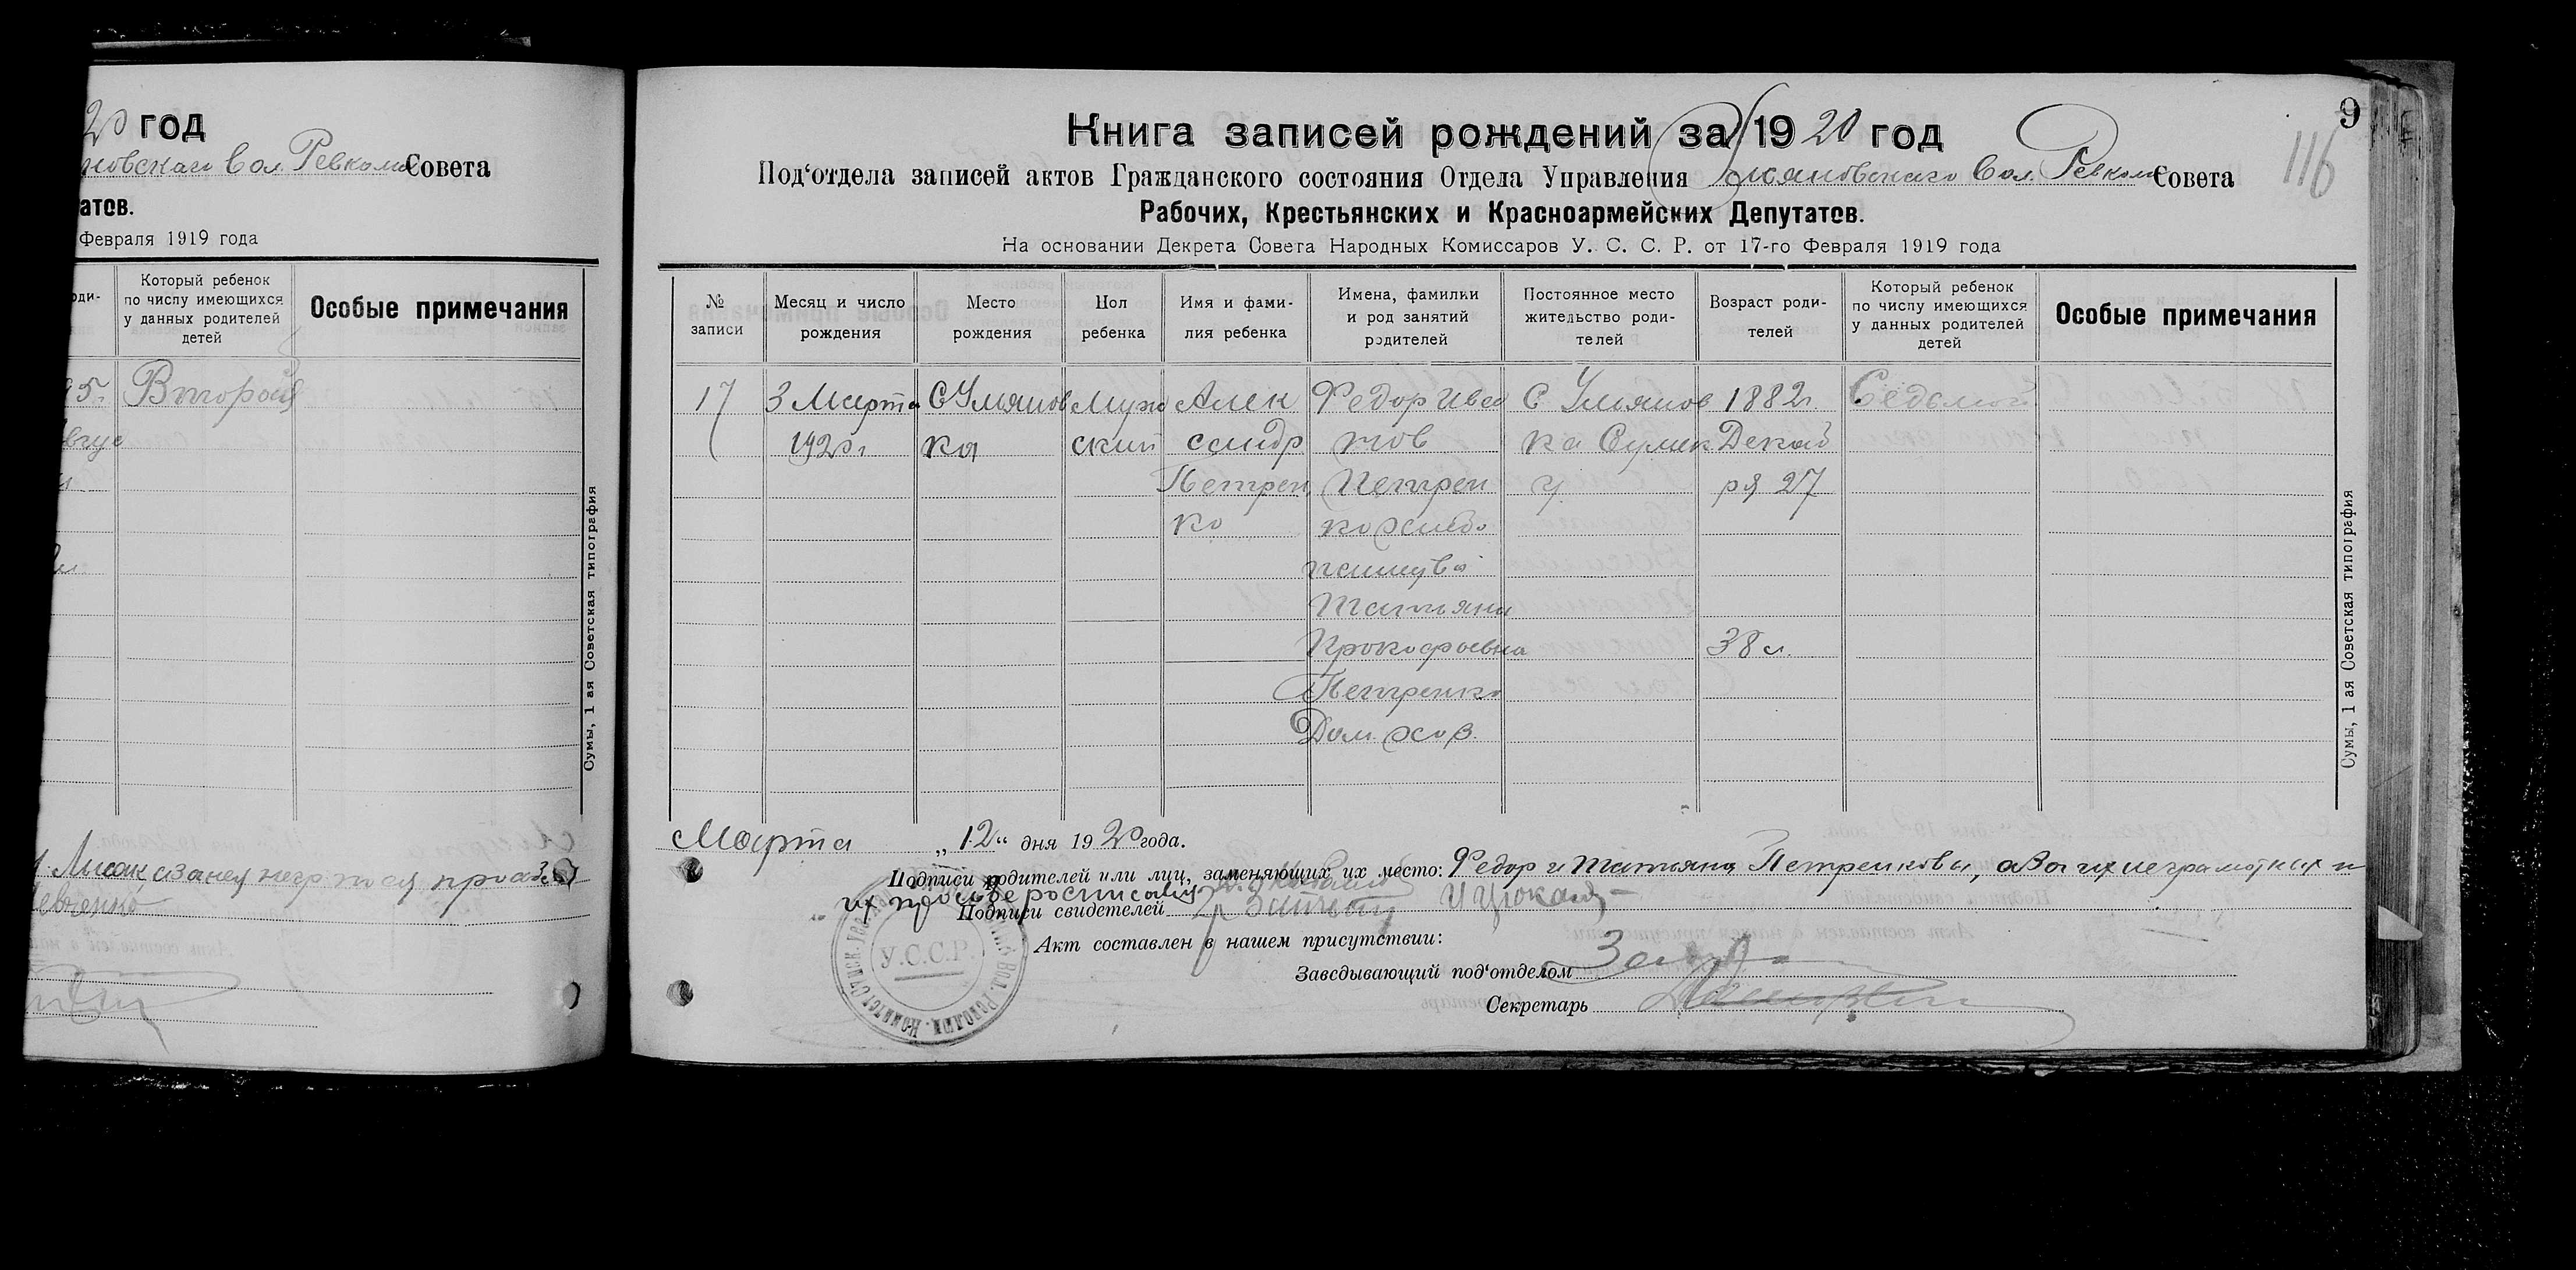 20 год
новскаго Вол. Ревкома Совета
атов.
Февраля 1919 года
Который ребенок
по числу имеющихся
у данных родителей
детей
Особые примечания
95 г. Второй
Сумы, 1 ая Советская типография
9
116
Книга записей рождений за 1920 год
Под‘отдела записей актов Гражданского состояния Отдела Управления Ульяновскаго Вол. Ревкома Совета
Рабочих, Крестьянских и Красноармейских Депутатов.
На основании Декрета Совета Народных Комиссаров У. С. С. Р. от 17-го Февраля 1919 года
№ записи
Месяц и число рождения
Место рождения
Пол ребенка
Имя и фами-
лия ребенка
Имена, фамилии
и род занятий
родителей
Постоянное место
жительство роди-
телей
Возраст роди-
телей
Который ребенок
по числу имеющихся
у данных родителей
детей
Особые примечания
17 3 Марта С Ульянов Муж Алек Федор Ива С Ульянов 1882 г. Седьмой
1920 г ка ский сандр нов ка Сумск Декаб
Петрен Петрен у. ря 27
ко ко хлебо
пашува
Татьяна
Прокофьевна 38 л.
Петренко
Дом. хоз.
Сумы, 1 ая Советская типография
Марта „12“ дня 1920 года.
Подписи родителей или лиц, заменяющих их место: Федор и Татьяна Петренковы, а за их неграмотных и
их просьбе росписався
Подписи свидетелей
Акт составлен в нашем присутствии:
Заведывающий под‘отделом
Секретарь
У.С.С.Р.